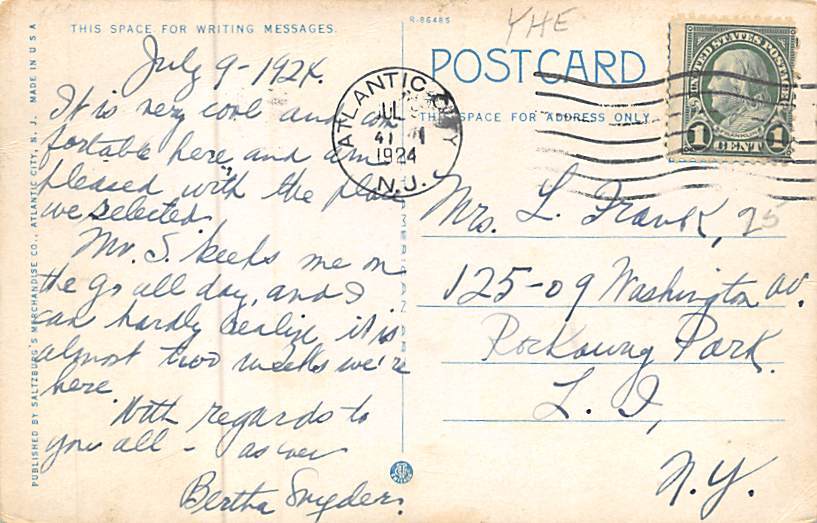 THIS SPACE FOR WRITING MESSAGES.
July 9-1924.
It is very cool and com
fortable here, and am
pleased with the place
we selected.
Mr. S. keeps me on
the go all day, and I
can hardly realize it is
almost two weeks we're
here
With regards to
you all - as ever
Bertha Snyder.
PUBLISHED BY SALTZBURG'S MERCHANDISE CO., ATLANTIC CITY, N. J. MADE IN U S A
R-86485
POST CARD
THIS SPACE FOR ADDRESS ONLY.
ATLANTIC CITY
JUL
1924
N.J.
UNITED STATES POSTAGE
FRANKLIN
1 CENT 1
Mrs. L. Frank, 25
125-09 Washington av.
Rockaway Park.
L. I,
N.Y.